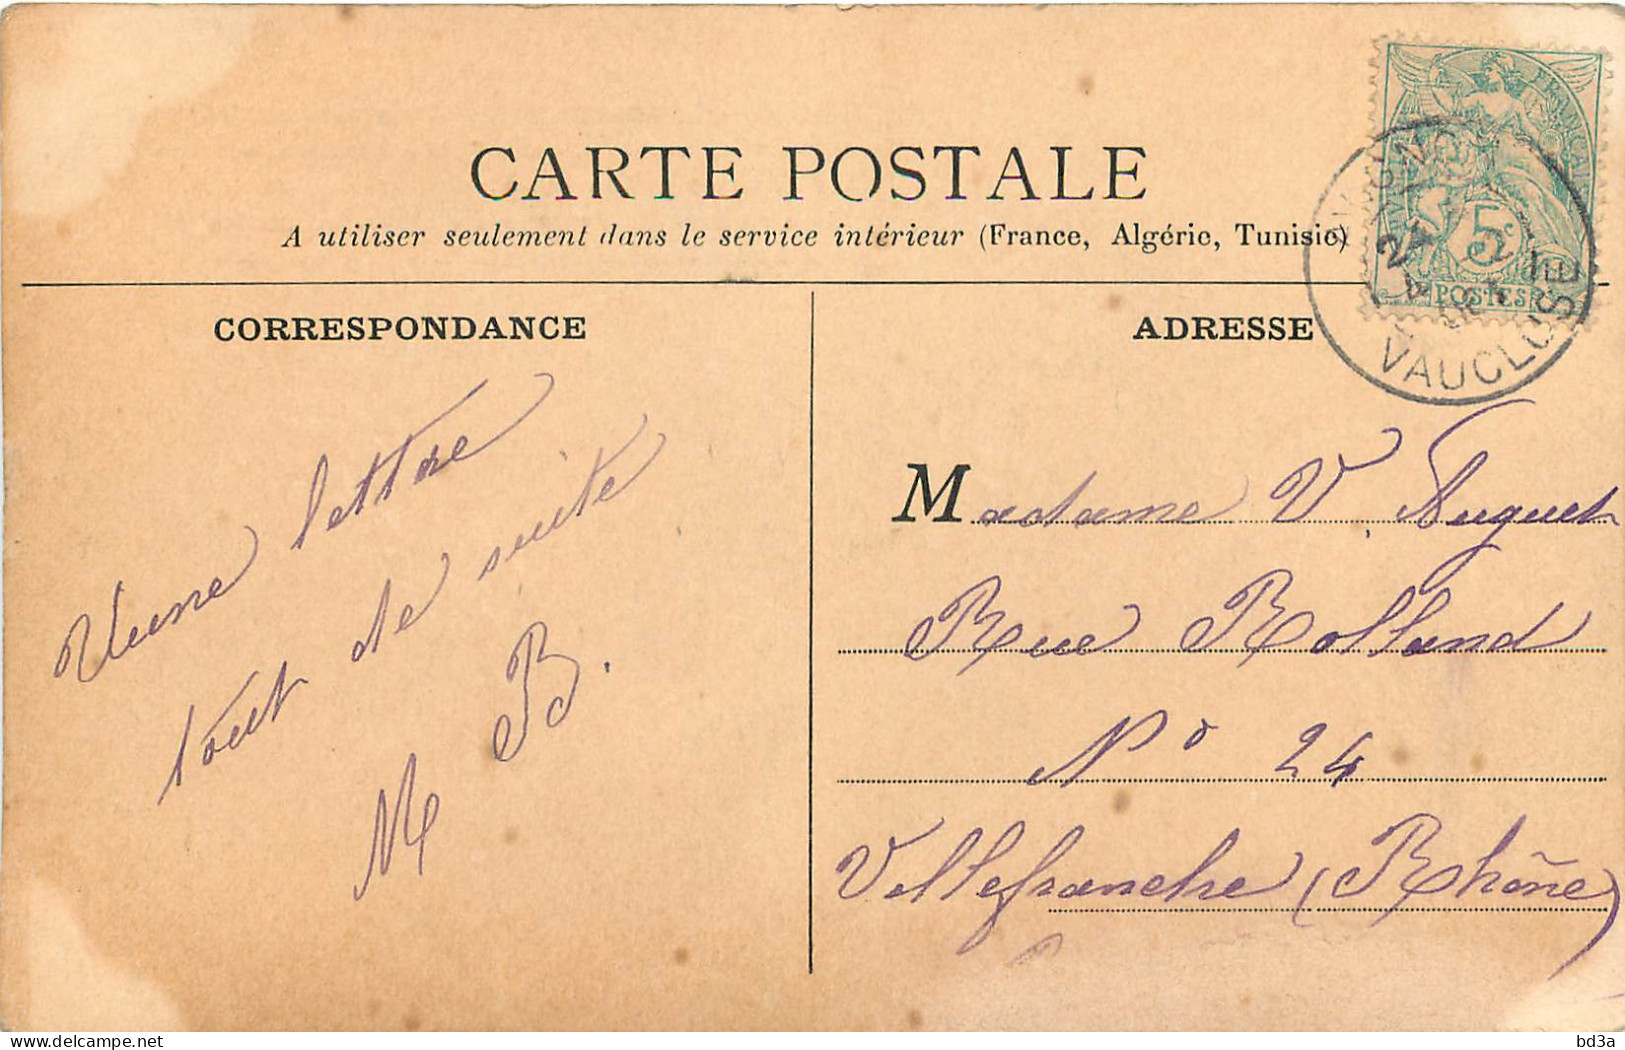 CARTE POSTALE
A utiliser seulement dans le service intérieur (France, Algérie, Tunisie)
CORRESPONDANCE
Une lettre
tout de suite
M B.
ADRESSE
Madame V. Huguet
Rue Rolland
N° 24
Villefranche (Rhône)
5c
POSTES
AVIGNON
24
VAUCLUSE
delcampe.net
bd3a